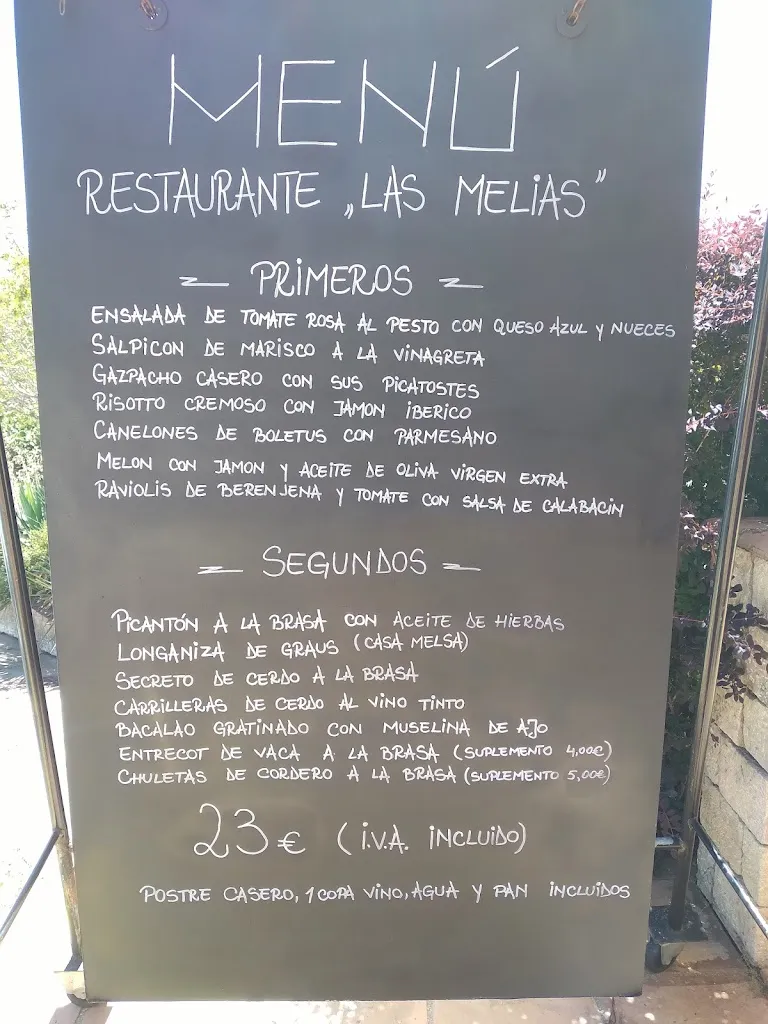 MENÚ
RESTAURANTE „LAS MELIAS”
PRIMEROS
ENSALADA DE TOMATE ROSA AL PESTO CON QUESO AZUL Y NUECES
SALPICON DE MARISCO A LA VINAGRETA
GAZPACHO CASERO CON SUS PICATOSTES
RISOTTO CREMOSO CON JAMON IBERICO
CANELONES DE BOLETUS CON PARMESANO
MELON CON JAMON Y ACEITE DE OLIVA VIRGEN EXTRA
RAVIOLIS DE BERENJENA Y TOMATE CON SALSA DE CALABACIN
SEGUNDOS
PICANTÓN A LA BRASA CON ACEITE DE HIERBAS
LONGANIZA DE GRAUS (CASA MELSA)
SECRETO DE CERDO A LA BRASA
CARRILLERAS DE CERDO AL VINO TINTO
BACALAO GRATINADO CON MUSELINA DE AJO
ENTRECOT DE VACA A LA BRASA (SUPLEMENTO 4,00€)
CHULETAS DE CORDERO A LA BRASA (SUPLEMENTO 5,00€)
23€ (I.V.A. INCLUIDO)
POSTRE CASERO, 1 COPA VINO, AGUA Y PAN INCLUIDOS